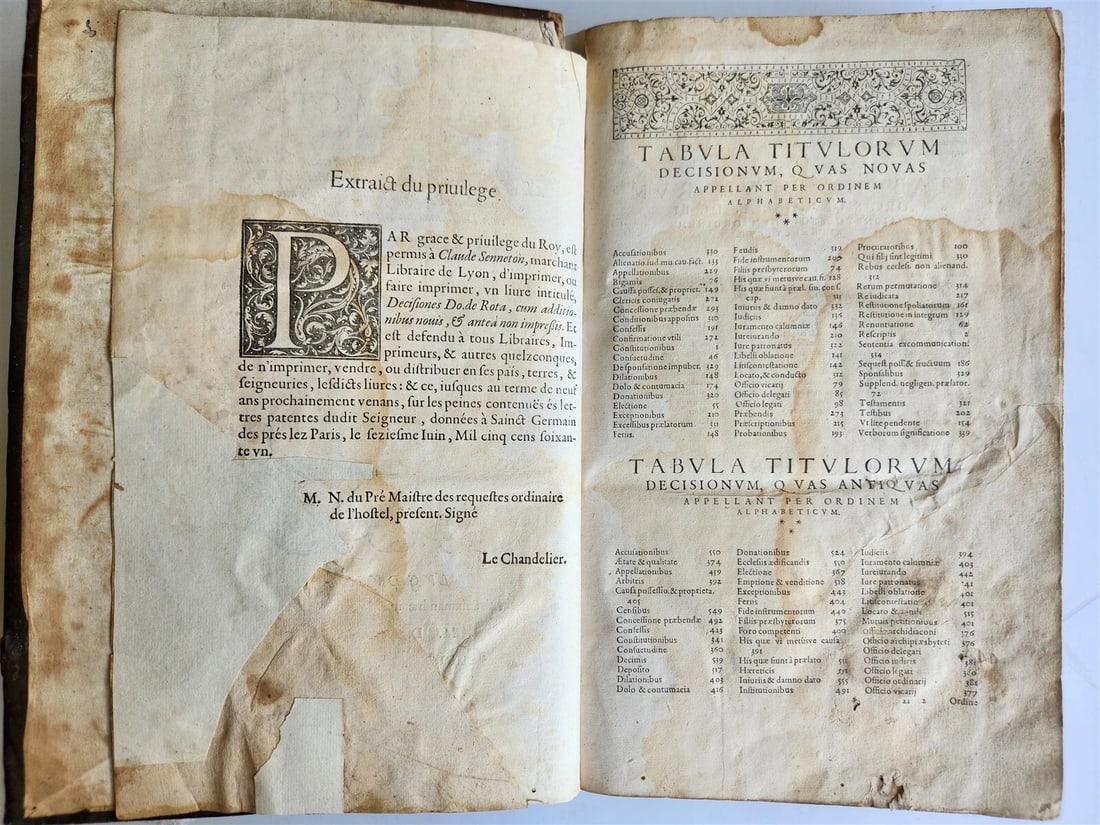 Extraict du priuilege.
PAR grace & priuilege du Roy, est
permis à Claude Senneton, marchant
Libraire de Lyon, d'imprimer, ou
faire imprimer, vn liure intitulé,
Decisiones Do. de Rota, cum additio-
nibus nouis, & anteà non impressis. Et
est defendu à tous Libraires, Im-
primeurs, & autres quelzconques,
de n'imprimer, vendre, ou distribuer en ses païs, terres, &
seigneuries, lesdicts liures: & ce, iusques au terme de neuf
ans prochainement venans, sur les peines contenuës és let-
tres patentes dudit Seigneur, données à Sainct Germain
des prés lez Paris, le seziesme Iuin, Mil cinq cens soixan-
te vn.
M. N. du Pré Maistre des requestes ordinaire
de l'hostel, present. Signé
Le Chandelier.
TABVLA TITVLORVM
DECISIONVM, QVAS NOVAS
APPELLANT PER ORDINEM
ALPHABETICVM.
Accusationibus 330
Alienatio. iud. mu. cau. fact. 133
Appellationibus 229
Bigamis 76
Causa posses. & propriet. 149
Clericis coniugatis 272
Concessione præbendæ 293
Conditionibus appositis 310
Confessis 191
Confirmatione vtili 272
Constitutionibus 1
Consuetudine 46
Desponsatione impuber. 329
Dilationibus 148
Dolo & contumacia 174
Donationibus 320
Electione 55
Exceptionibus 210
Excessibus prælatorum 331
Feriis. 148
Feudis 319
Fide instrumentorum 200
Filiis presbyterorum 74
His quæ vi metusve cau. fi. 128
His quæ fiunt à præl. sin. cons
cap. 311
Iniuriis & damno dato 332
Iudiciis 136
Iuramento calumniæ 146
Iureiurando 210
Iure patronatus 322
Libelli oblatione 141
Litiscontestatione 142
Locato, & conducto 312
Officio vicarij 79
Officio delegati 85
Officio legati 98
Præbendis 273
Præscriptionibus 215
Probationibus 193
Procuratoribus 100
Qui filij sint legitimi 330
Rebus eccles. non alienand.
312
Rerum permutatione 314
Re iudicata 217
Restitutione spoliatorum 161
Restitutione in integrum 129
Renuntiatione 62
Rescriptis 2
Sententia excommunication.
334
Sequest. poss. & fructuum 186
Sponsalibus 329
Supplend. negligen. prælator.
72
Testamentis 321
Testibus 202
Vt lite pendente 154
Verborum significatione 339
TABVLA TITVLORVM
DECISIONVM, QVAS ANTIQVAS
APPELLANT PER ORDINEM
ALPHABETICVM.
Accusationibus 550
Ætate & qualitate 374
Appellationibus 459
Arbitris 392
Causa possessio. & proprieta.
405
Censibus 549
Concessione præbendæ 492
Confessis 423
Constitutionibus 341
Consuetudine 360
Decimis 539
Deposito 517
Dilationibus 403
Dolo & contumacia 416
Donationibus 524
Ecclesiis ædificandis 550
Electione 367
Emptione & venditione 518
Exceptionibus 443
Feriis 404
Fide instrumentorum 440
Filiis præsbyterorum 375
Foro competenti 400
His quæ vi metusve causa
391
His quæ fiunt à prælato
Hæreticis
Iniuriis & damno dato 555
Institutionibus 491
Iudiciis 394
Iuramento calumniæ 403
Iureiurando 442
Iure patronatus
Libelli oblatione 401
Litiscontestatio 401
Locato & 515
Mutuis petitionibus 401
Officio archidiaconi 376
Officio archipræsbyteri 376
Officio delegati
Officio iudicis
Officio legati
Officio ordinarij 381
Officio vicarij 377
Ordine